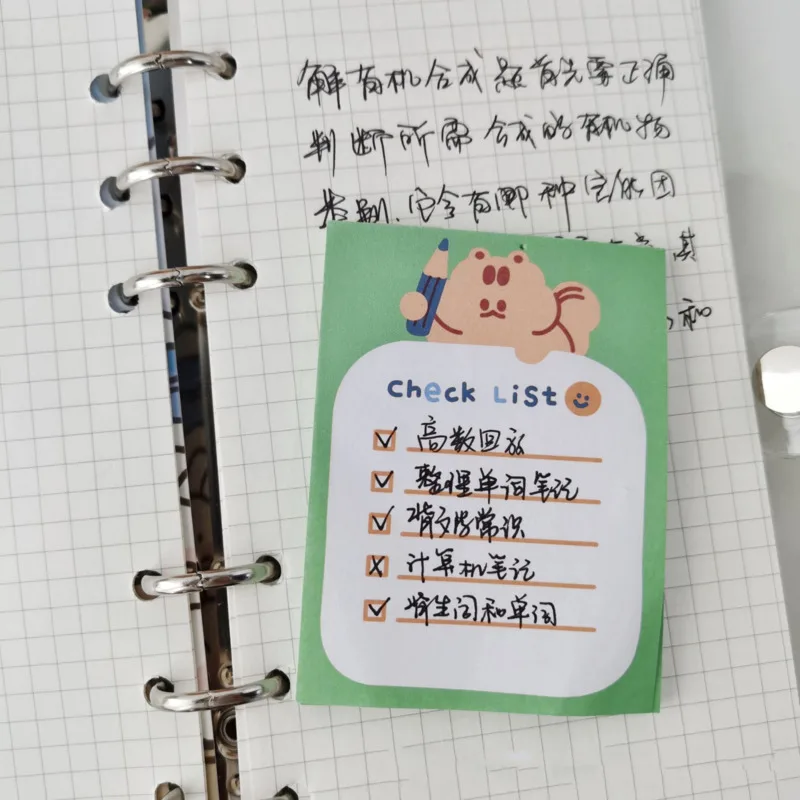 解有机合成题首先要正确
判断所需合成的有机物
类别,它含有哪种官能团
其
和
Check List
高数回放
整理单词笔记
背文学常识
计算机笔记
背生词和单词